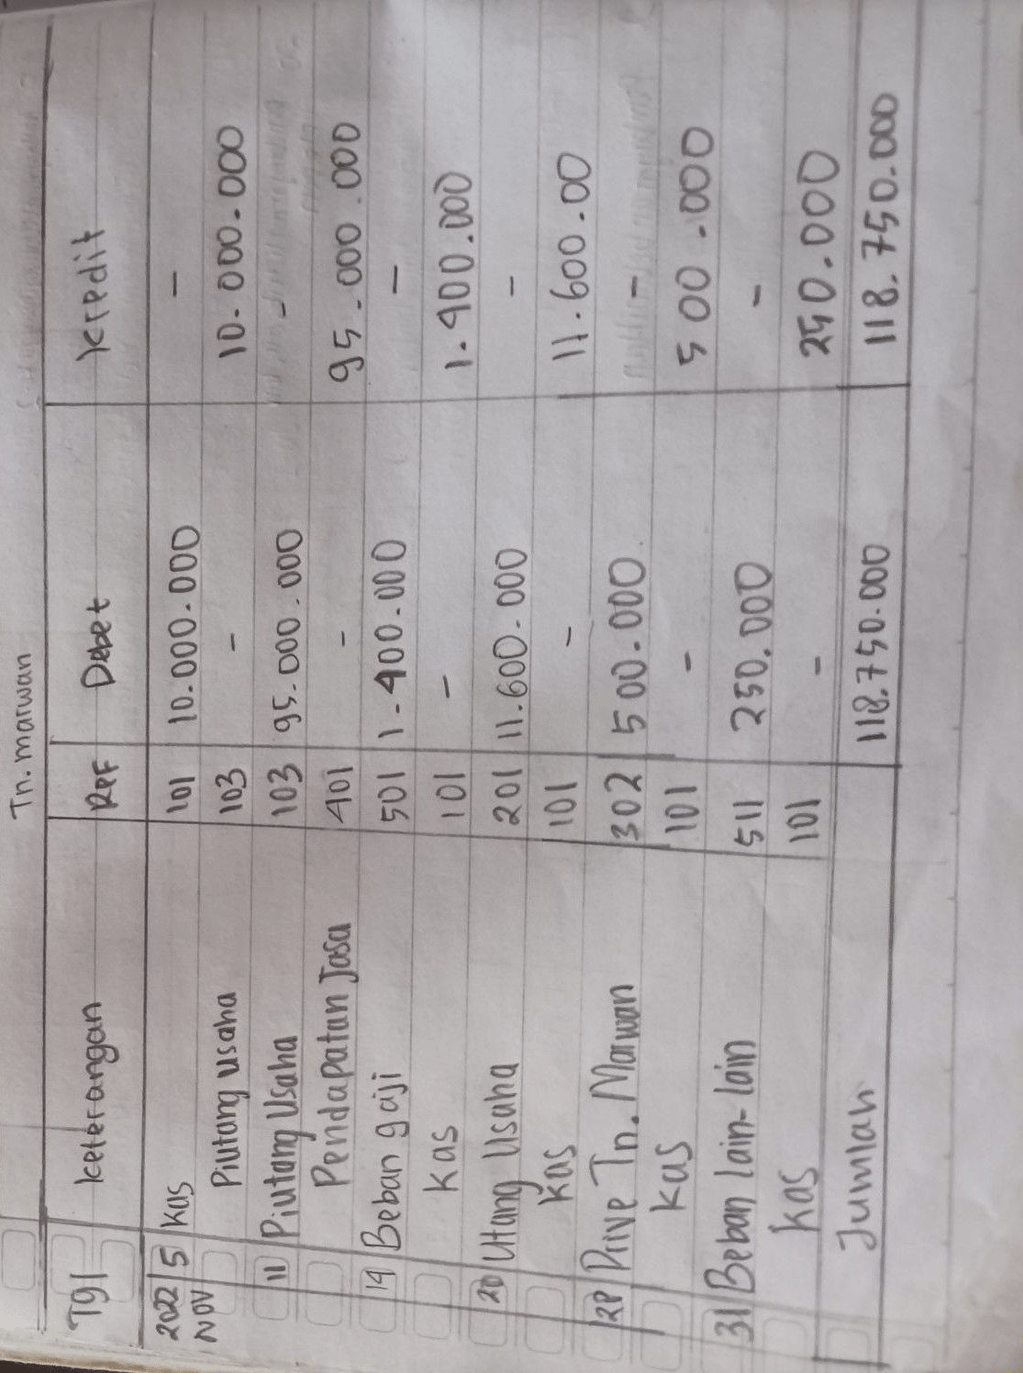 Tn. marwan
Tgl keterangan REF Debet kredit
2022 5 kas 101 10.000.000 -
NOV Piutang usaha 103 - 10.000.000
11 Piutang Usaha 103 95.000.000 -
Pendapatan Jasa 401 - 95.000.000
14 Beban gaji 501 1.400.000 -
kas 101 - 1.400.000
20 Utang Usaha 201 11.600.000 -
kas 101 - 11.600.00
28 Prive Tn. Marwan 302 500.000 -
kas 101 - 500.000
31 Beban lain-lain 511 250.000 -
kas 101 - 250.000
Jumlah 118.750.000 118.750.000